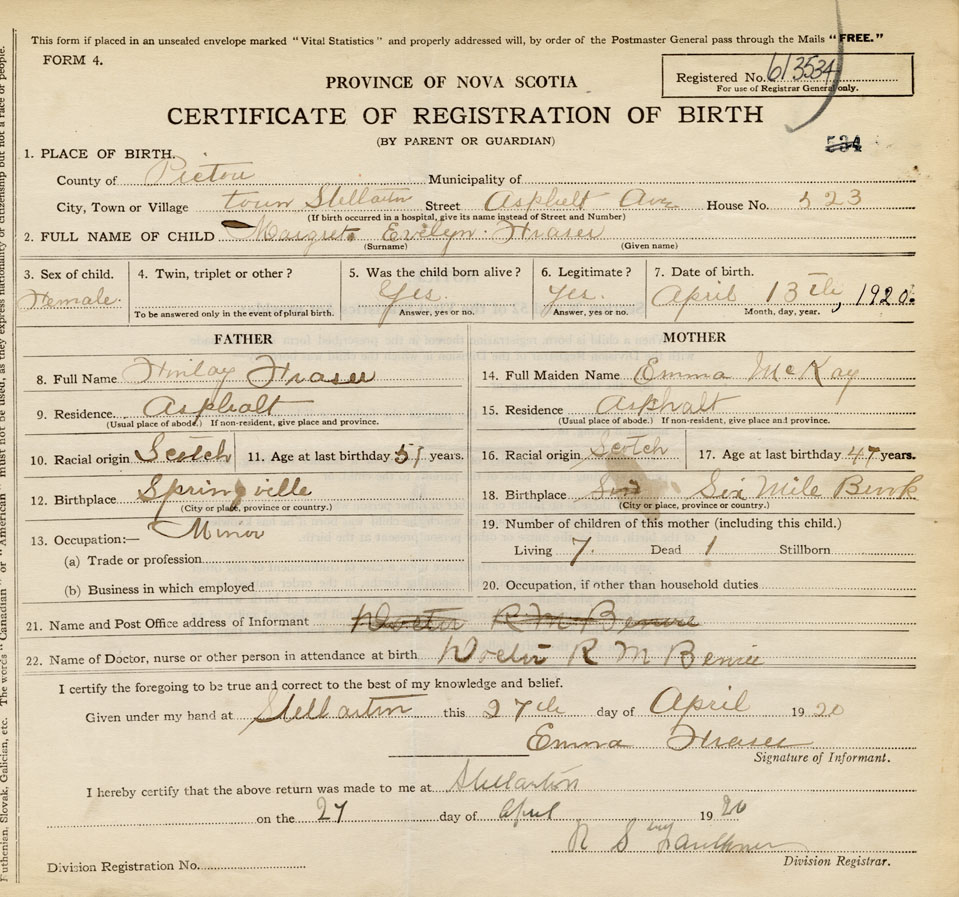 This form if placed in an unsealed envelope marked "Vital Statistics" and properly addressed will, by order of the Postmaster General pass through the Mails "FREE."
FORM 4.
PROVINCE OF NOVA SCOTIA
Registered No. 613534
For use of Registrar General only.
CERTIFICATE OF REGISTRATION OF BIRTH
(BY PARENT OR GUARDIAN)
534
1. PLACE OF BIRTH.
County of Pictou Municipality of
City, Town or Village town Stellarton Street Asphelt Ave House No. 523
(If birth occurred in a hospital, give its name instead of Street and Number)
2. FULL NAME OF CHILD Margret Evelyn Fraser
(Surname) (Given name)
3. Sex of child. 4. Twin, triplet or other? 5. Was the child born alive? 6. Legitimate? 7. Date of birth.
Female. Yes. Yes. April 13th, 1920.
To be answered only in the event of plural birth. Answer, yes or no. Answer, yes or no. Month, day, year.
FATHER MOTHER
8. Full Name Finlay Fraser 14. Full Maiden Name Emma McKay
9. Residence Asphalt 15. Residence Asphalt
(Usual place of abode.) If non-resident, give place and province. (Usual place of abode.) If non-resident, give place and province.
10. Racial origin Scotch 11. Age at last birthday 51 years. 16. Racial origin Scotch 17. Age at last birthday 47 years.
12. Birthplace Springville 18. Birthplace Six Six Mile Brook
(City or place, province or country.) (City or place, province or country.)
13. Occupation:— Minor 19. Number of children of this mother (including this child.)
(a) Trade or profession Living 7 Dead 1 Stillborn
(b) Business in which employed 20. Occupation, if other than household duties
21. Name and Post Office address of Informant Docter R M Benvie
22. Name of Doctor, nurse or other person in attendance at birth Docter R M Benvie
I certify the foregoing to be true and correct to the best of my knowledge and belief.
Given under my hand at Stellarton this 27th day of April 1920
Emma Fraser
Signature of Informant.
I hereby certify that the above return was made to me at Stellarton
on the 27 day of April 1920
R S Faulkner
Division Registrar.
Division Registration No.